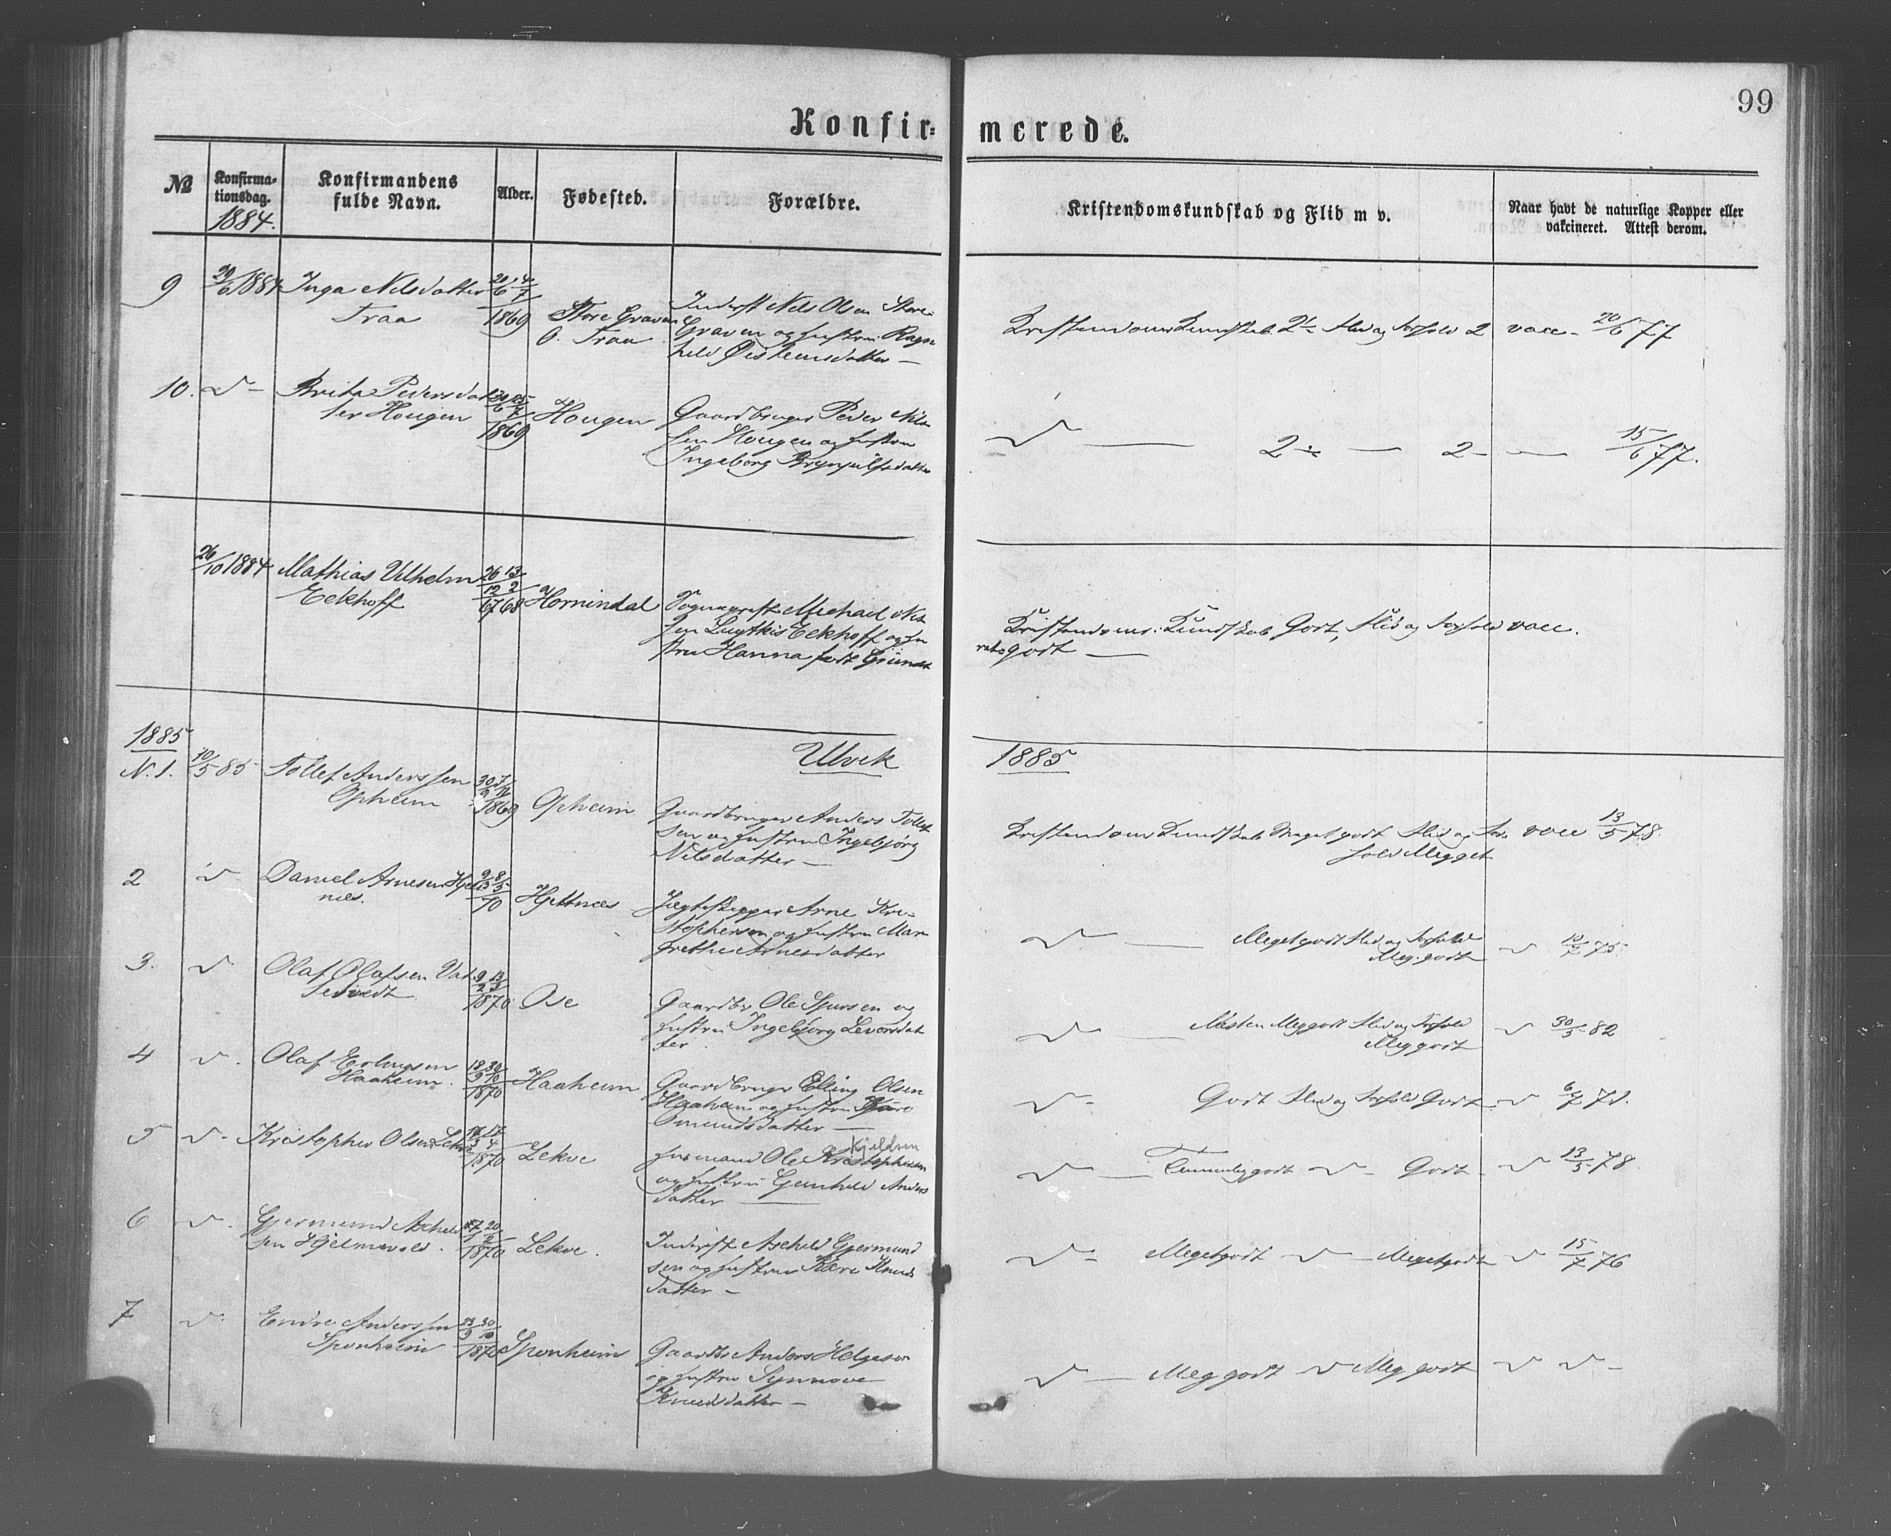 99
Konfir=
merede.
№
Konfirma-
tionsdag.
1884.
Konfirmandens
fulde Navn.
Alder.
Fødested.
Forældre.
Kristendomskundskab og Flid m v.
Naar havt de naturlige Kopper eller
vakcineret. Attest derom.
9 29/6 1884 Inga Nilsdatter
Traa
1869
Store Graven
o. Traa
Inderst Nils Olsen Store
Graven og hustru Ragn
hild Øisteinsdatter —
Kristendoms Kundskab 2 Flid og Forhold 2 vacc 20/6 77
10. Brita Pedersdat
ter Hougen
1869
Hougen
Gaardbruger Peder Nils
sen Hougen og hustru
Ingeborg Brynjulfsdatter
— 2 — 2 — 15/6 77.
26/10 1884 Mathias Vilhelm
Eckhoff
26/12 67 13/2 68
Hornindal
Sogneprest Michael Nil
sen Eckhoff og hu
stru Hanna født Gründt
Kristendoms: Kundskab Godt, Flid og Forhold vacc.
godt —
1885
Ulvik
1885
N. 1. 10/5 85 Tollef Anderssen
Opheim
1869
Opheim
Gaardbruger Anders Tollef
sen og hustru Ingebjørg
Nilsdatter —
Kristendoms Kundskab Meget godt Flid og For vacc 13/5 78.
hold Megget
2 Daniel Arnesen Hjelt
næs.
70
Hjeltnæs
Jægteskipper Arne Kri-
stophersen og hustru Mar
grethe Arnesdatter
— Meget godt Flid og Forhold
Meg. godt
3. Olaf Olafsen Vat
1870
Ose
Gaardbr Ole Sjursen og
hustru Ingebjørg Leversdat
ter.
— Næsten Meg godt Flid og Forhold 30/5 82
Meg godt
4 Olaf Erlingsen
Haaheim.
18/9 30/10
1870
Haaheim
Gaardbruger Elling Olsen
Haaheim og hustru
Omundsdatter —
Godt Flid og Forhold Godt
5 Kristopher Olsen Lekve
1870
Lekve
Kjeldsen
Husmand Ole Kristophersen
og hustru Gunhild Anders
datter —
— Temmelig godt — Godt 13/5 78.
6 Gjermund Askild
sen Hjelmevold.
1870
Lekve.
Inderst Askild Gjermund
sen og hustru Kari Knuds
datter —
Meget godt — Meget godt 15/7 76
7 Endre Anderssen
Sponheim
23/9 30/10
1870
Sponheim
Gaardbr Anders Helgesen
og hustru Synnove
Knudsdatter —
— Meg godt Meg godt